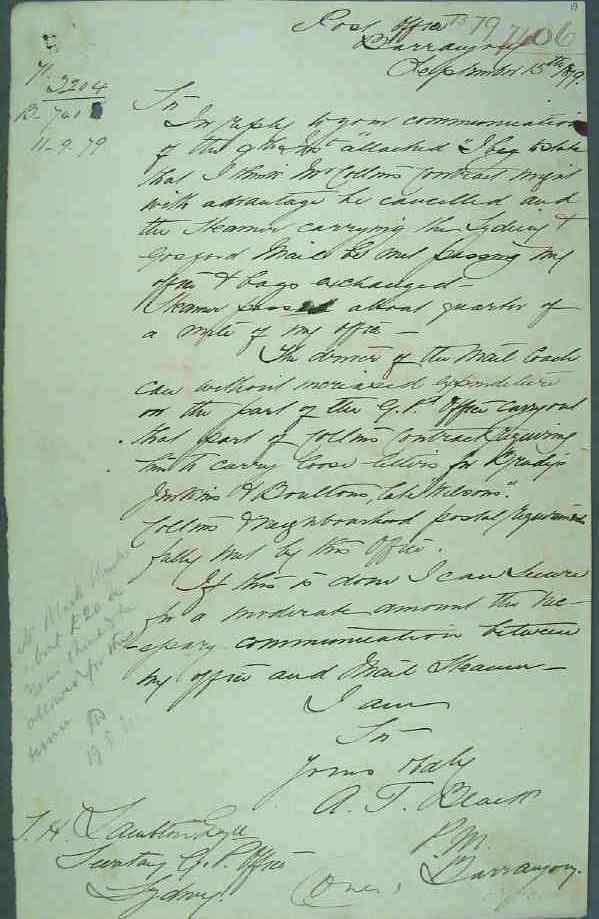 Post Office 79 7406
Barranjoey
September 15th 1879.
N. 2204
B- 740
11-9-79
Sir
In reply to your communication
of the 9th Inst "attached" I beg to state
that I think Mr Collins Contract might
with advantage be cancelled and
the Steamer carrying the Sydney &
Gosford Mail be met passing my
office & bags exchanged-
Steamer passes about quarter of
a mile of my office -
The driver of the Mail Coach
can without increased expenditure
on the part of the G.P. Office carry out
that part of Collins Contract requiring
him to carry loose letters for
Jenkins & Boultons, late Wilsons".
Collins & Neighbourhood postal requirements
fully met by this Office.
If this is done I can secure
for a moderate amount the ne-
cessary communication between
my office and Mail Steamer -
I am
Sir
Yours Obdly
A. T. Black
P.M.
Barranjoey.
S. H. Lambton Esqre
Secretary G. P. Office
Sydney.
(Over)
£20 a
19